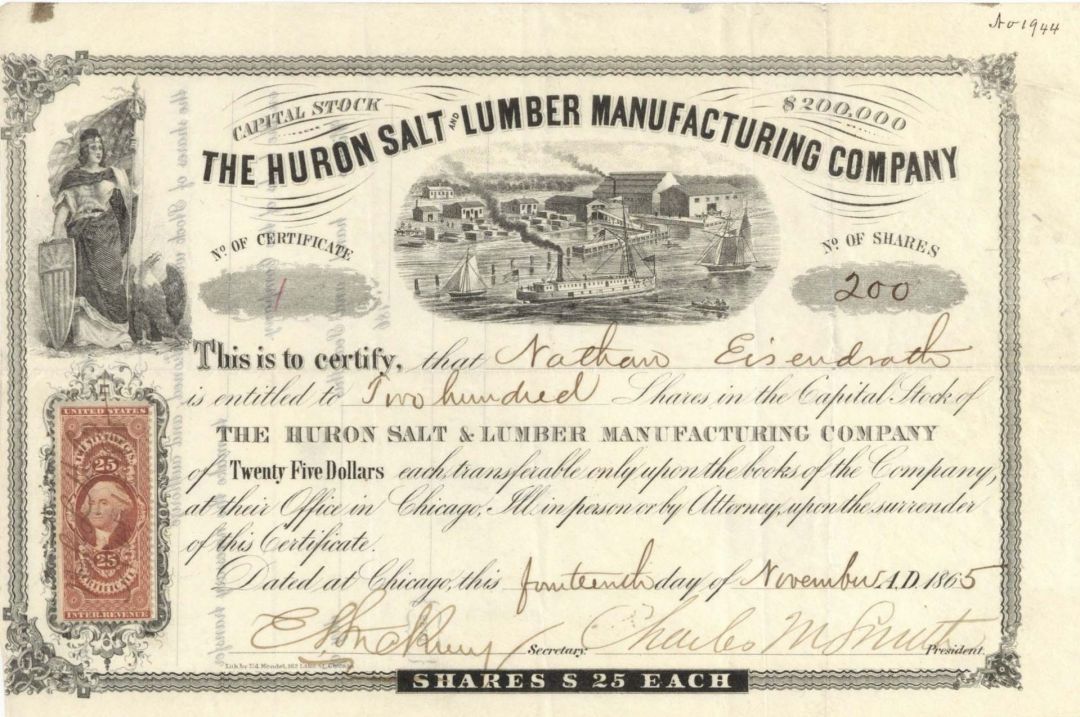 No 1944
CAPITAL STOCK $200,000
THE HURON SALT AND LUMBER MANUFACTURING COMPANY
No. OF CERTIFICATE
1
No. OF SHARES
200
This is to certify, that Nathan Eisendrath
is entitled to Two hundred Shares in the Capital Stock of
THE HURON SALT & LUMBER MANUFACTURING COMPANY
of Twenty Five Dollars each, transferable only upon the books of the Company,
at their Office in Chicago, Ill. in person or by Attorney, upon the surrender
of this Certificate.
Dated at Chicago, this fourteenth day of November A.D. 1865
Secretary. Charles M Smith President.
Lith. by Ed. Mendel, 162 Lake St. Chicago
SHARES $ 25 EACH
UNITED STATES
25
25
CERTIFICATE
INTER. REVENUE